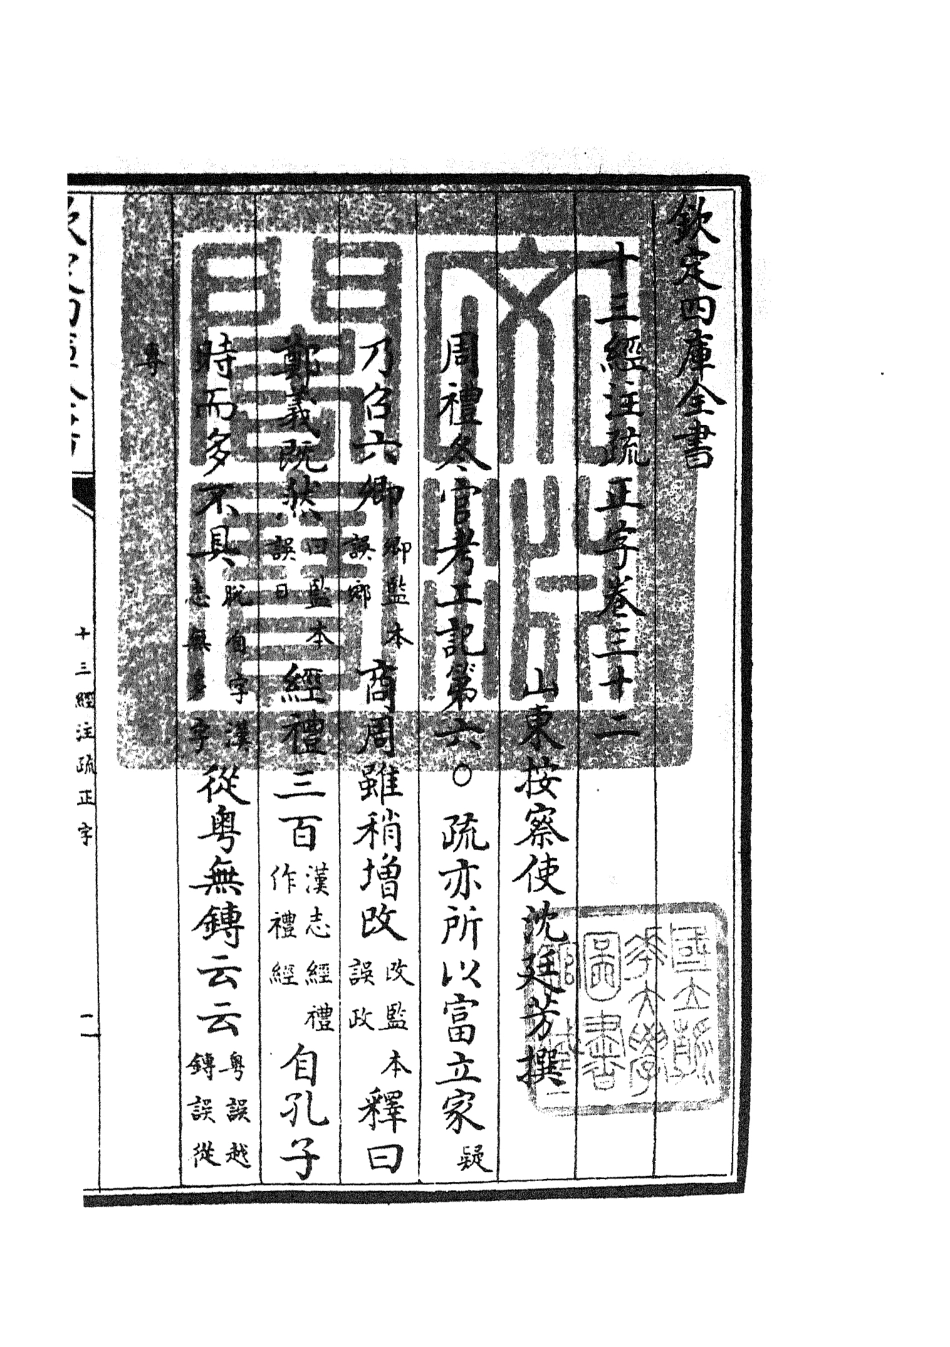 欽定四庫全書
十三經注疏正字卷三十二
山東按察使沈廷芳撰
周禮冬官考工記第六○疏亦所以富立家疑
乃召六卿卿監本誤鄉商周雖稍增改改監本誤政釋曰
鄭義既然曰監本誤日經禮三百漢志經禮作禮經自孔子
時而多不具脫自字漢志無多字從粤無鎛云云粤誤越鎛誤從
專
十三經注疏正字
文淵閣寶